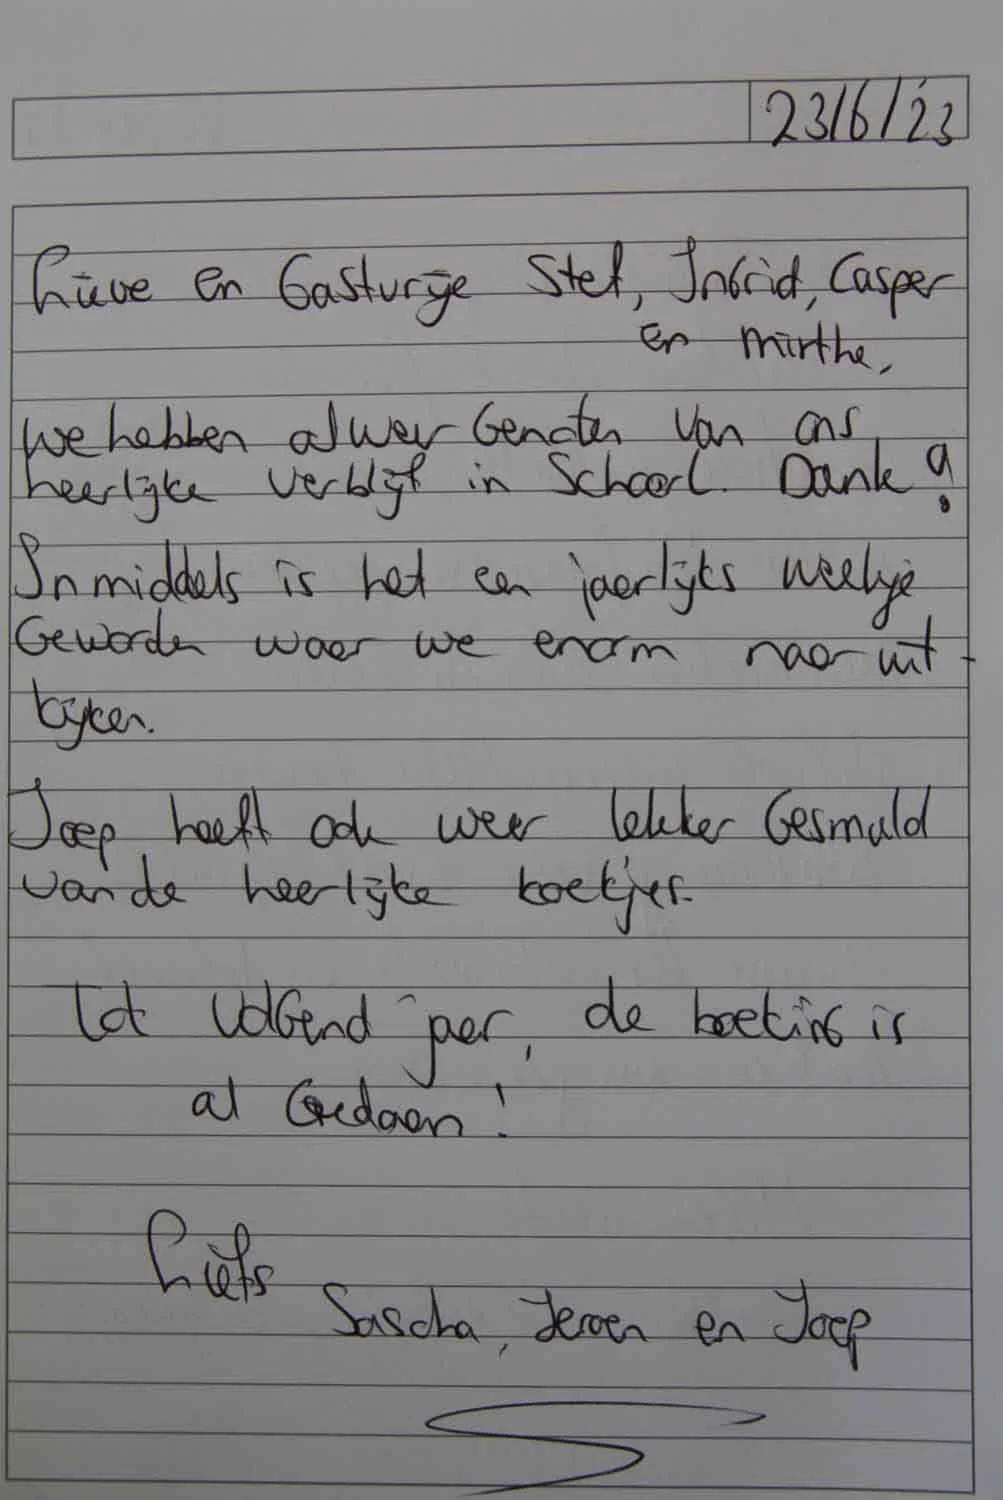 23/6/'23
Lieve en Gastvrije Stef, Ingrid, Casper
en Mirthe,
we hebben alweer Genoten van ons
heerlijke verblijf in Schoorl. Dank!
Inmiddels is het een jaarlijks weekje
Geworden waar we enorm naar uit-
kijken.
Joep heeft ook weer lekker Gesmuld
van de heerlijke koekjes.
Tot volgend jaar, de boeking is
al Gedaan!
Liefs
Sascha, Jeroen en Joep